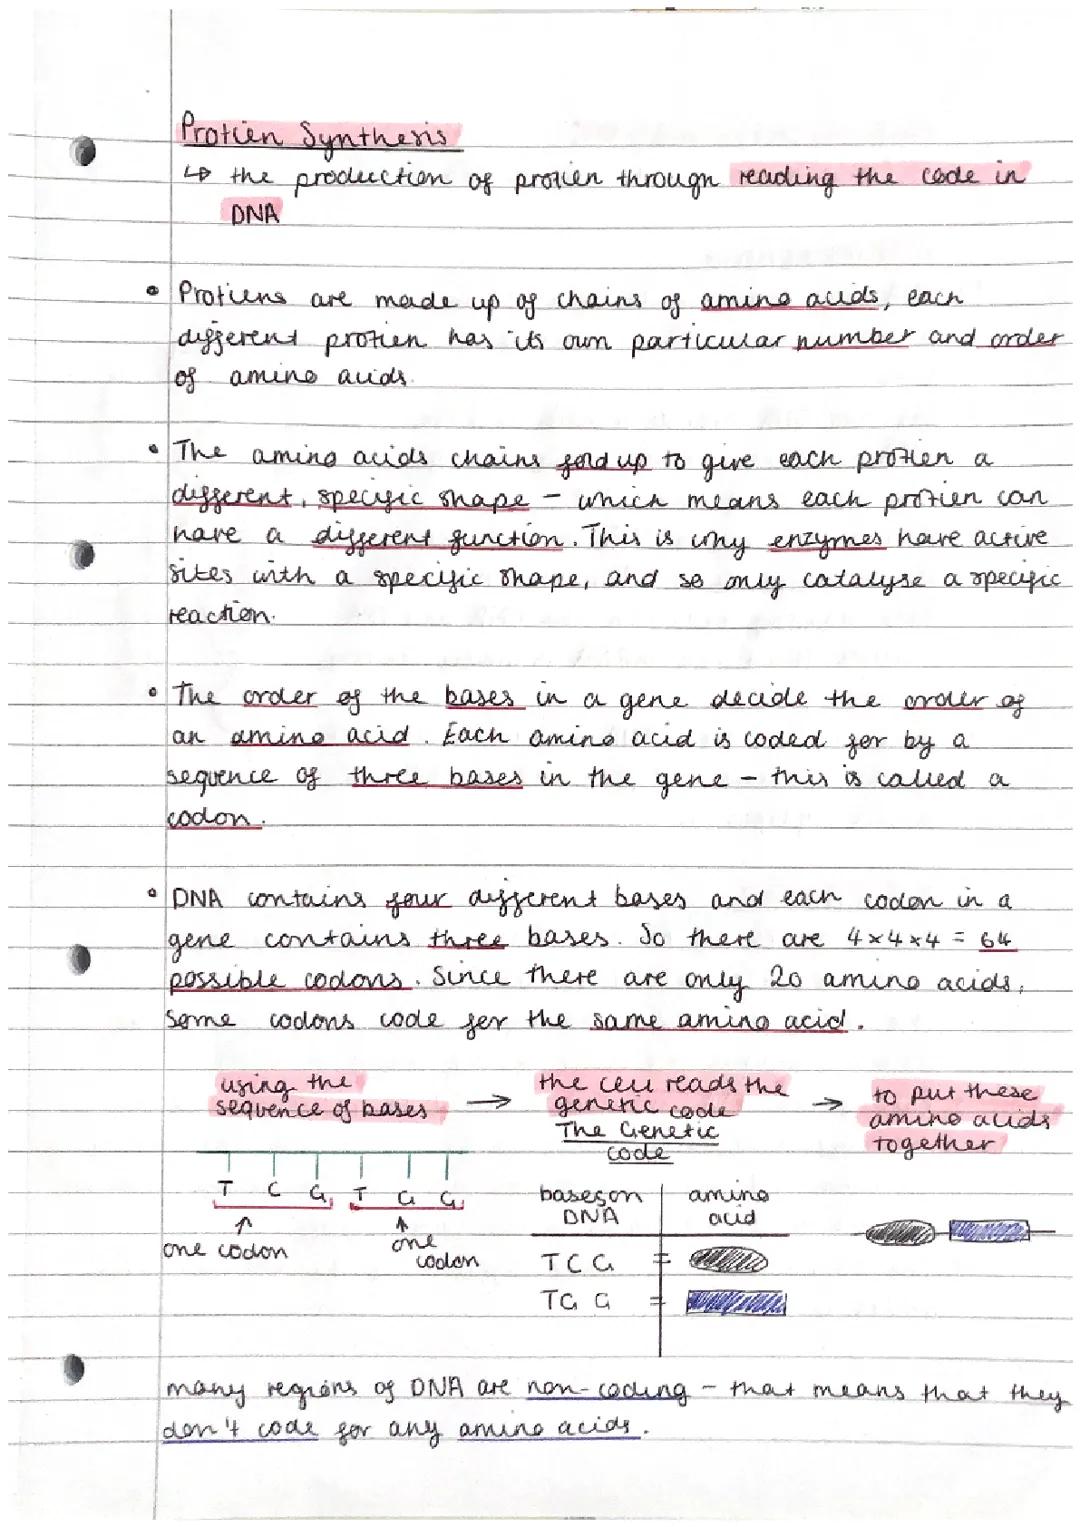 Protien Synthesis
↳ the production of protien through reading the code in
DNA
• Protiens are made up of chains of amino acids, each
different protien has its own particular number and order
of amino acids.
• The amino acids chains fold up to give each protien a
different, specific shape - which means each protien can
have a different function. This is why enzymes have active
sites with a specific shape, and so only catalyse a specific
reaction.
• The order of the bases in a gene decide the order of
an amino acid. Each amino acid is coded for by a
sequence of three bases in the gene - this is called a
codon.
• DNA contains four different bases and each codon in a
gene contains three bases. So there are 4×4×4 = 64
possible codons. Since there are only 20 amino acids,
some codons code for the same amino acid.
using the
sequence of bases →
the cell reads the
genetic code →
to put these
amino acids
together
The Genetic
code
T C G T G G
one codon
one
codon
bases on
DNA
amino
acid
TCG =
TGG =
many regions of DNA are non-coding - that means that they
don't code for any amino acids.